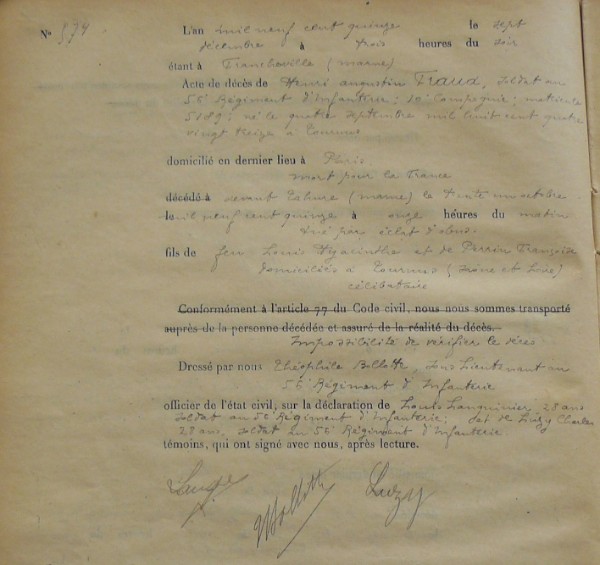 N° 574 L'an mil neuf cent quinze le sept
décembre à trois heures du soir
étant à Francheville (marne)
Acte de décès de Henri augustin Fraud, soldat au
56e Régiment d'Infanterie; 10e Compagnie; matricule
5189; né le quatre septembre mil huit cent quatre
vingt treize à Tournus
domicilié en dernier lieu à Paris
mort pour la France
décédé à devant Tahure (marne) le trente un octobre
le mil neuf cent quinze à onze heures du matin
tué par éclat d'obus.
fils de feu Louis Hyacinthe et de Perrin Françoise
domiciliés à Tournus (Saône et Loire)
célibataire
Conformément à l'article 77 du Code civil, nous nous sommes transporté
auprès de la personne décédée et assuré de la réalité du décès.
Impossibilité de vérifier le décès
Dressé par nous Théophile Bollotte, sous Lieutenant au
56e Régiment d'Infanterie
officier de l'état civil, sur la déclaration de Louis Languinier, 28 ans
soldat au 56e Régiment d'Infanterie; et de Luzy Charles
28 ans, soldat au 56e Régiment d'Infanterie
témoins, qui ont signé avec nous, après lecture.
Bollotte Luzy